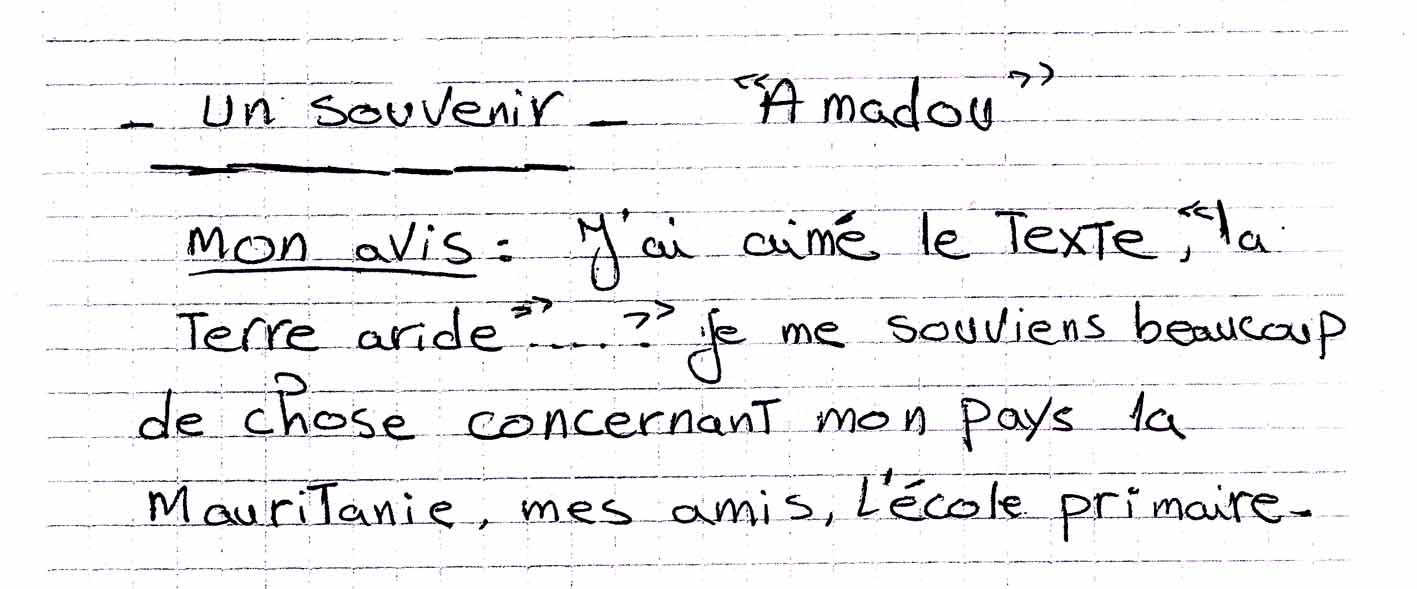 - Un souvenir - "Amadou"
Mon avis : J'ai aimé le Texte, "la
Terre aride" .....?" je me souviens beaucoup
de chose concernant mon pays la
Mauritanie, mes amis, L'école primaire.